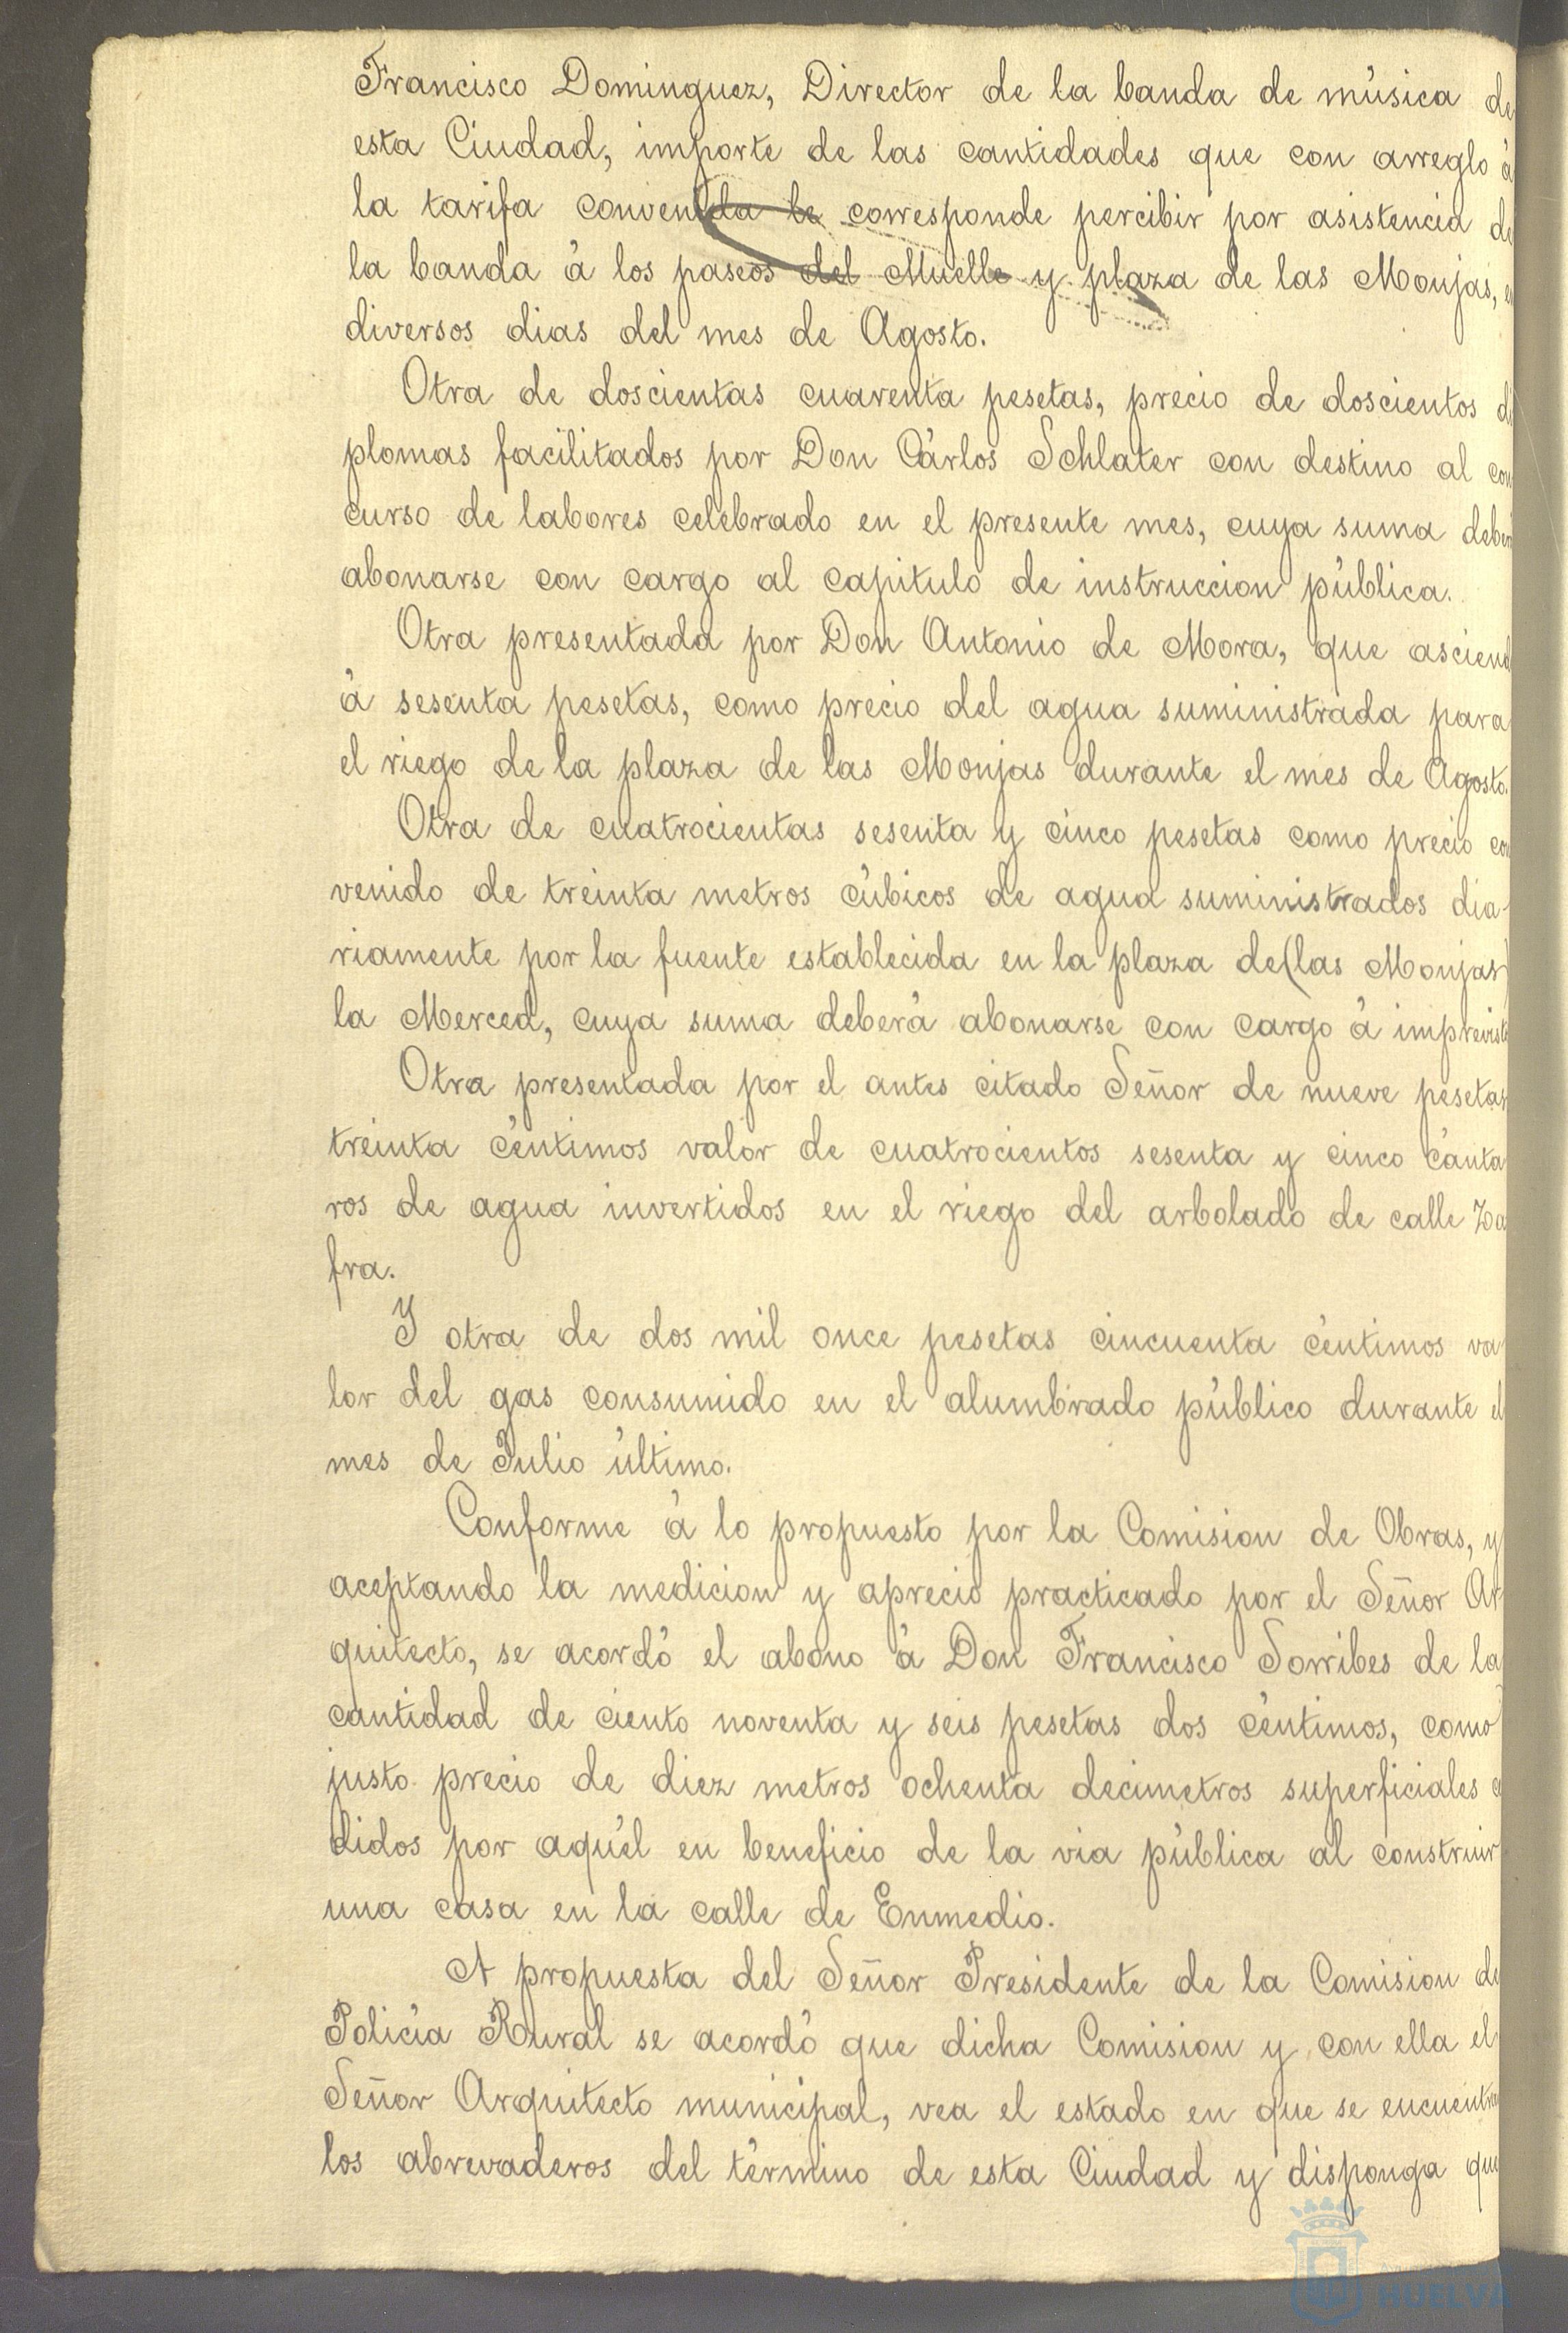 Francisco Dominguez, Director de la banda de música de
esta Ciudad, importe de las cantidades que con arreglo á
la tarifa convenida le corresponde percibir por asistencia de
la banda á los paseos del Muelle y plaza de las Monjas, en
diversos dias del mes de Agosto.
Otra de doscientas cuarenta pesetas, precio de doscientos di
plomas facilitados por Don Cárlos Schlater con destino al con
curso de labores celebrado en el presente mes, cuya suma deberá
abonarse con cargo al capitulo de instruccion pública.
Otra presentada por Don Antonio de Mora, que asciende
á sesenta pesetas, como precio del agua suministrada para
el riego de la plaza de las Monjas durante el mes de Agosto.
Otra de cuatrocientas sesenta y cinco pesetas como precio con
venido de treinta metros cúbicos de agua suministrados dia-
riamente por la fuente establecida en la plaza de (las Monjas)
la Merced, cuya suma deberá abonarse con cargo á imprevistos
Otra presentada por el antes citado Señor de nueve pesetas
treinta céntimos valor de cuatrocientos sesenta y cinco cánta
ros de agua invertidos en el riego del arbolado de calle Za
fra.
Y otra de dos mil once pesetas cincuenta céntimos va
lor del gas consumido en el alumbrado público durante el
mes de Julio último.
Conforme á lo propuesto por la Comision de Obras, y
aceptando la medicion y aprecio practicado por el Señor Ar
quitecto, se acordó el abono á Don Francisco Sorribes de la
cantidad de ciento noventa y seis pesetas dos céntimos, como
justo precio de diez metros ochenta decimetros superficiales ce
didos por aquél en beneficio de la via pública al construir
una casa en la calle de Enmedio.
A propuesta del Señor Presidente de la Comision de
Policía Rural se acordó que dicha Comision y con ella el
Señor Arquitecto municipal, vea el estado en que se encuentran
los abrevaderos del término de esta Ciudad y disponga que
HUELVA